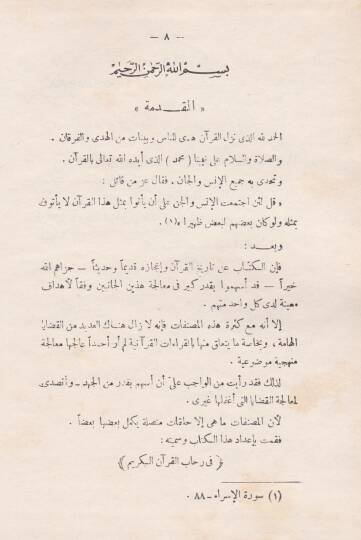 — ٨ —
بسم الله الرحمن الرحيم
« المقدمة »
الحمد لله الذى نزل القرآن هدى للناس وبينات من الهدى والفرقان .
والصلاة والسلام على نبينا ( محمد ) الذى أيده الله تعالى بالقرآن .
وتحدى به جميع الإنس والجان . فقال عز من قائل :
« قل لئن اجتمعت الإنس والجن على أن يأتوا بمثل هذا القرآن لا يأتون
بمثله ولو كان بعضهم لبعض ظهيرا »(١) .
وبعد :
فإن الكتاب عن تاريخ القرآن وإعجازه قديماً وحديثاً — جزاهم الله
خيراً — قد أسهموا بقدر كبير فى معالجة هذين الجانبين وفقاً لأهداف
معينة لدى كل واحد منهم .
إلا أنه مع كثرة هذه المصنفات فإنه لا زال هناك العديد من القضايا
الهامة ، وبخاصة ما يتعلق منها بالقراءات القرآنية لم أر أحداً عالجها معالجة
منهجية موضوعية .
لذلك فقد رأيت من الواجب علىّ أن أسهم بقدر من الجهد — وأتصدى
لمعالجة القضايا التى أغفلها غيرى .
لأن المصنفات ما هى إلا حلقات متصلة يكمل بعضها بعضاً .
فقمت بإعداد هذا الكتاب وسميته :
﴿ فى رحاب القرآن الكريم ﴾
(١) سورة الإسراء — ٨٨ .